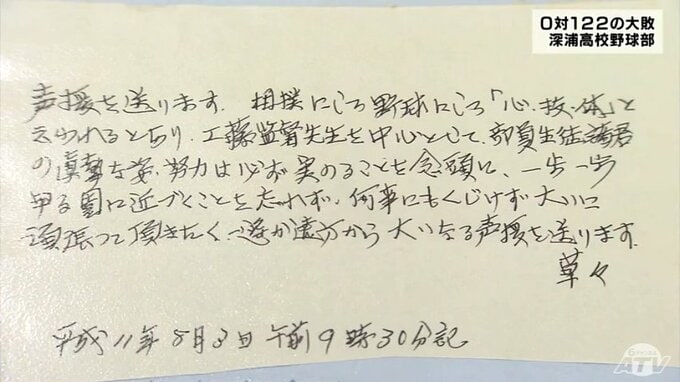 0対122の大敗
深浦高校野球部
声援を送ります。相撲にしろ野球にしろ「心・技・体」と
云われるとおり、工藤監督先生を中心として、部員生徒諸君
の真摯な姿、努力は必ず実のることを念頭に、一歩一歩
甲子園に近づくことを忘れず、何事にもくじけず大いに
頑張って頂きたく、遥か遠方から大いなる声援を送ります。
草々
平成11年8月3日 午前9時30分記
6チャンネル
ATV